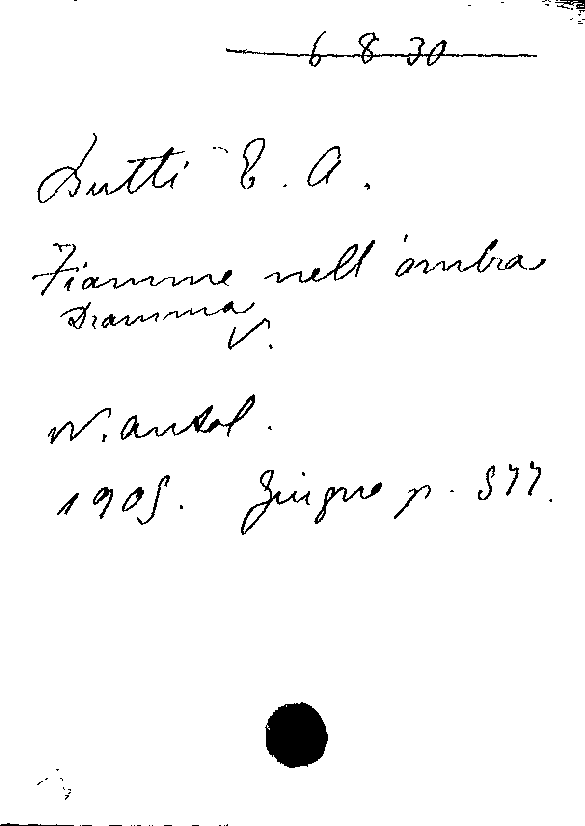 6 8 30
Butti E. A.
Fiamme nell'ombra
Dramma
V.
N. antol.
1905. Giugno p. 577.